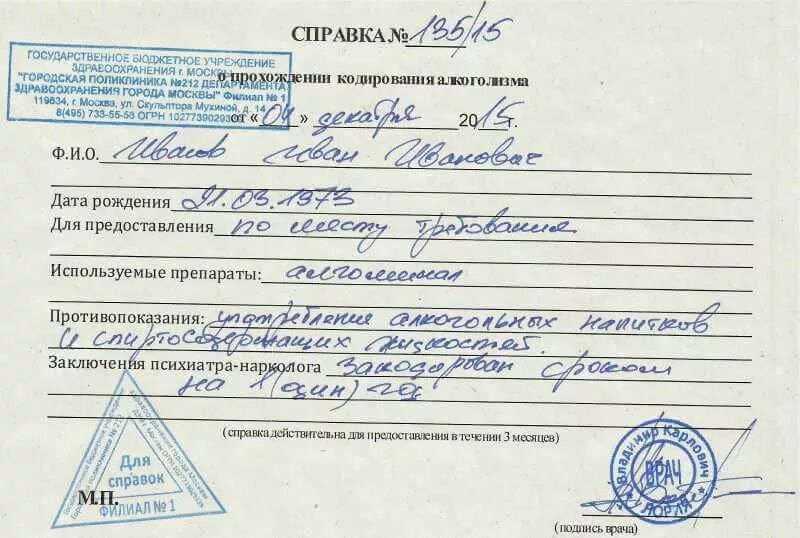 СПРАВКА № 135/15
ГОСУДАРСТВЕННОЕ БЮДЖЕТНОЕ УЧРЕЖДЕНИЕ
ЗДРАВООХРАНЕНИЯ г. МОСКВЫ
"ГОРОДСКАЯ ПОЛИКЛИНИКА №212 ДЕПАРТАМЕНТА
ЗДРАВООХРАНЕНИЯ ГОРОДА МОСКВЫ" Филиал № 1
119634, г. Москва, ул. Скульптора Мухиной, д. 14
8(495) 733-55-56 ОГРН
о прохождении кодирования алкоголизма
от «04» декабря 2015г.
Ф.И.О. Иванов Иван Иванович
Дата рождения 21.03.1973
Для предоставления по месту требования
Используемые препараты: алгоминал
Противопоказания: употребление алкогольных напитков
и спиртосодержащих жидкостей.
Заключения психиатра-нарколога Закодирован сроком
на 1 (один) год
(справка действительна для предоставления в течении 3 месяцев)
Для
справок
ФИЛИАЛ № 1
М.П.
Владимир Карлович
ВРАЧ
(подпись врача)